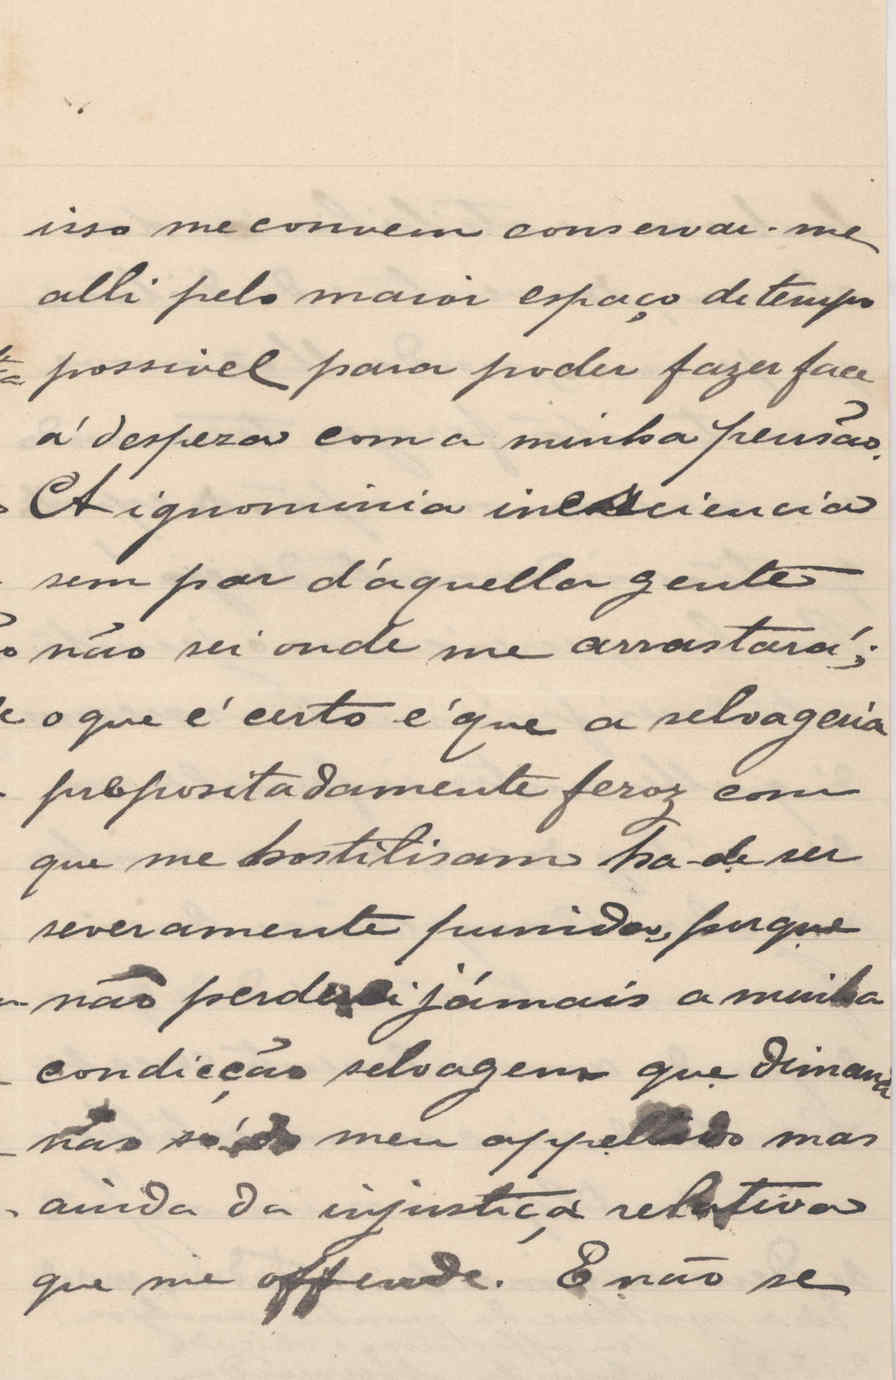 isso me convem conservar-me
alli pelo maior espaço de tempo
possivel para poder fazer face
á despeza com a minha pensão.
A ignominia insciencia
sem par d'aquella gente
não sei onde me arrastará;
o que é certo é que a selvageria
prepositadamente feroz com
que me hostilisam ha-de ser
severamente punida, porque
não perderei jámais a minha
condicção selvagem que dimana
não só do meu appellido mas
ainda da injustiça relativa
que me offende. E não se